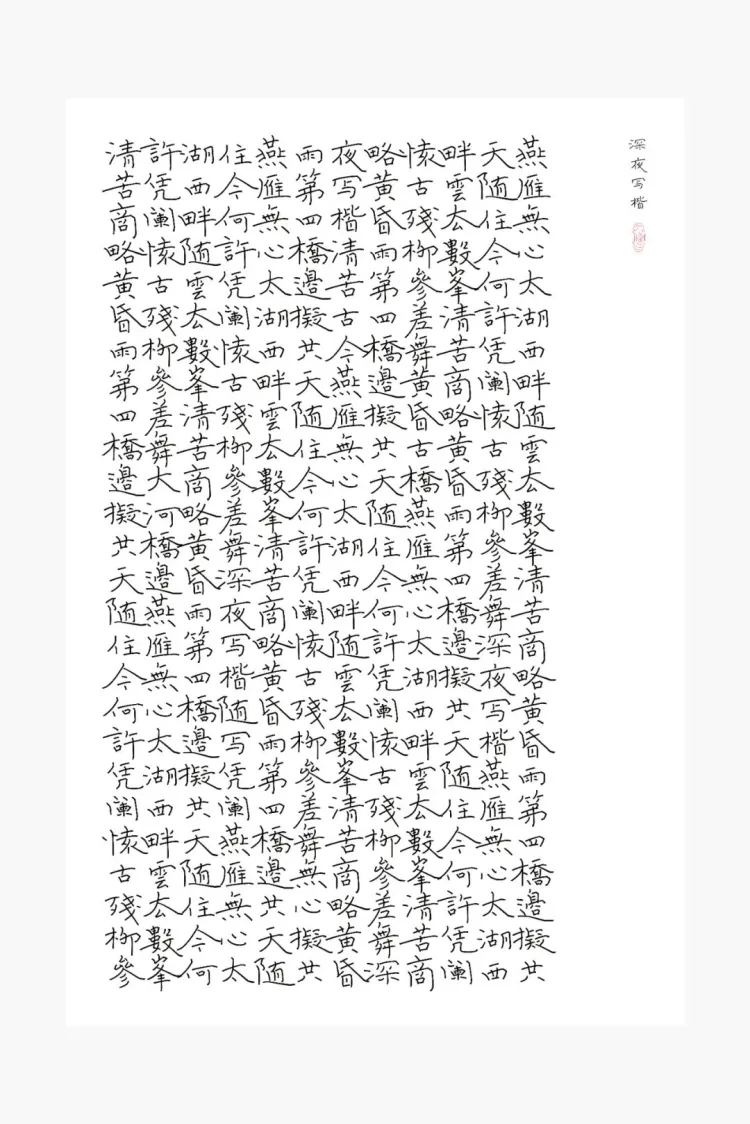 深夜写楷
燕雁無心太湖西畔随雲去數峯清苦商略黄昏雨第四橋邊擬共
天随住今何許凭阑懷古殘柳參差舞深夜写楷燕雁無心太湖西
畔雲去數峯清苦商略黄昏雨第四橋邊擬共天随住今何許凭阑
懷古殘柳參差舞黄昏古橋燕雁無心太湖西畔雲去數峯清苦商
略黄昏雨第四橋邊擬共天随住今何許凭阑懷古殘柳參差舞深
夜写楷清苦古今燕雁無心太湖西畔随雲去數峯清苦商略黄昏
雨第四橋邊擬共天随住今何許凭阑懷古殘柳參差舞無心擬共
燕雁無心太湖西畔雲去數峯清苦商略黄昏雨第四橋邊共天随
住今何許凭阑懷古殘柳參差舞深夜写楷随写凭阑燕雁無心太
湖西畔随雲去數峯清苦商略黄昏雨第四橋邊擬共天随住今何
許凭阑懷古殘柳參差舞大河橋邊燕雁無心太湖西畔雲去數峯
清苦商略黄昏雨第四橋邊擬共天随住今何許凭阑懷古殘柳參